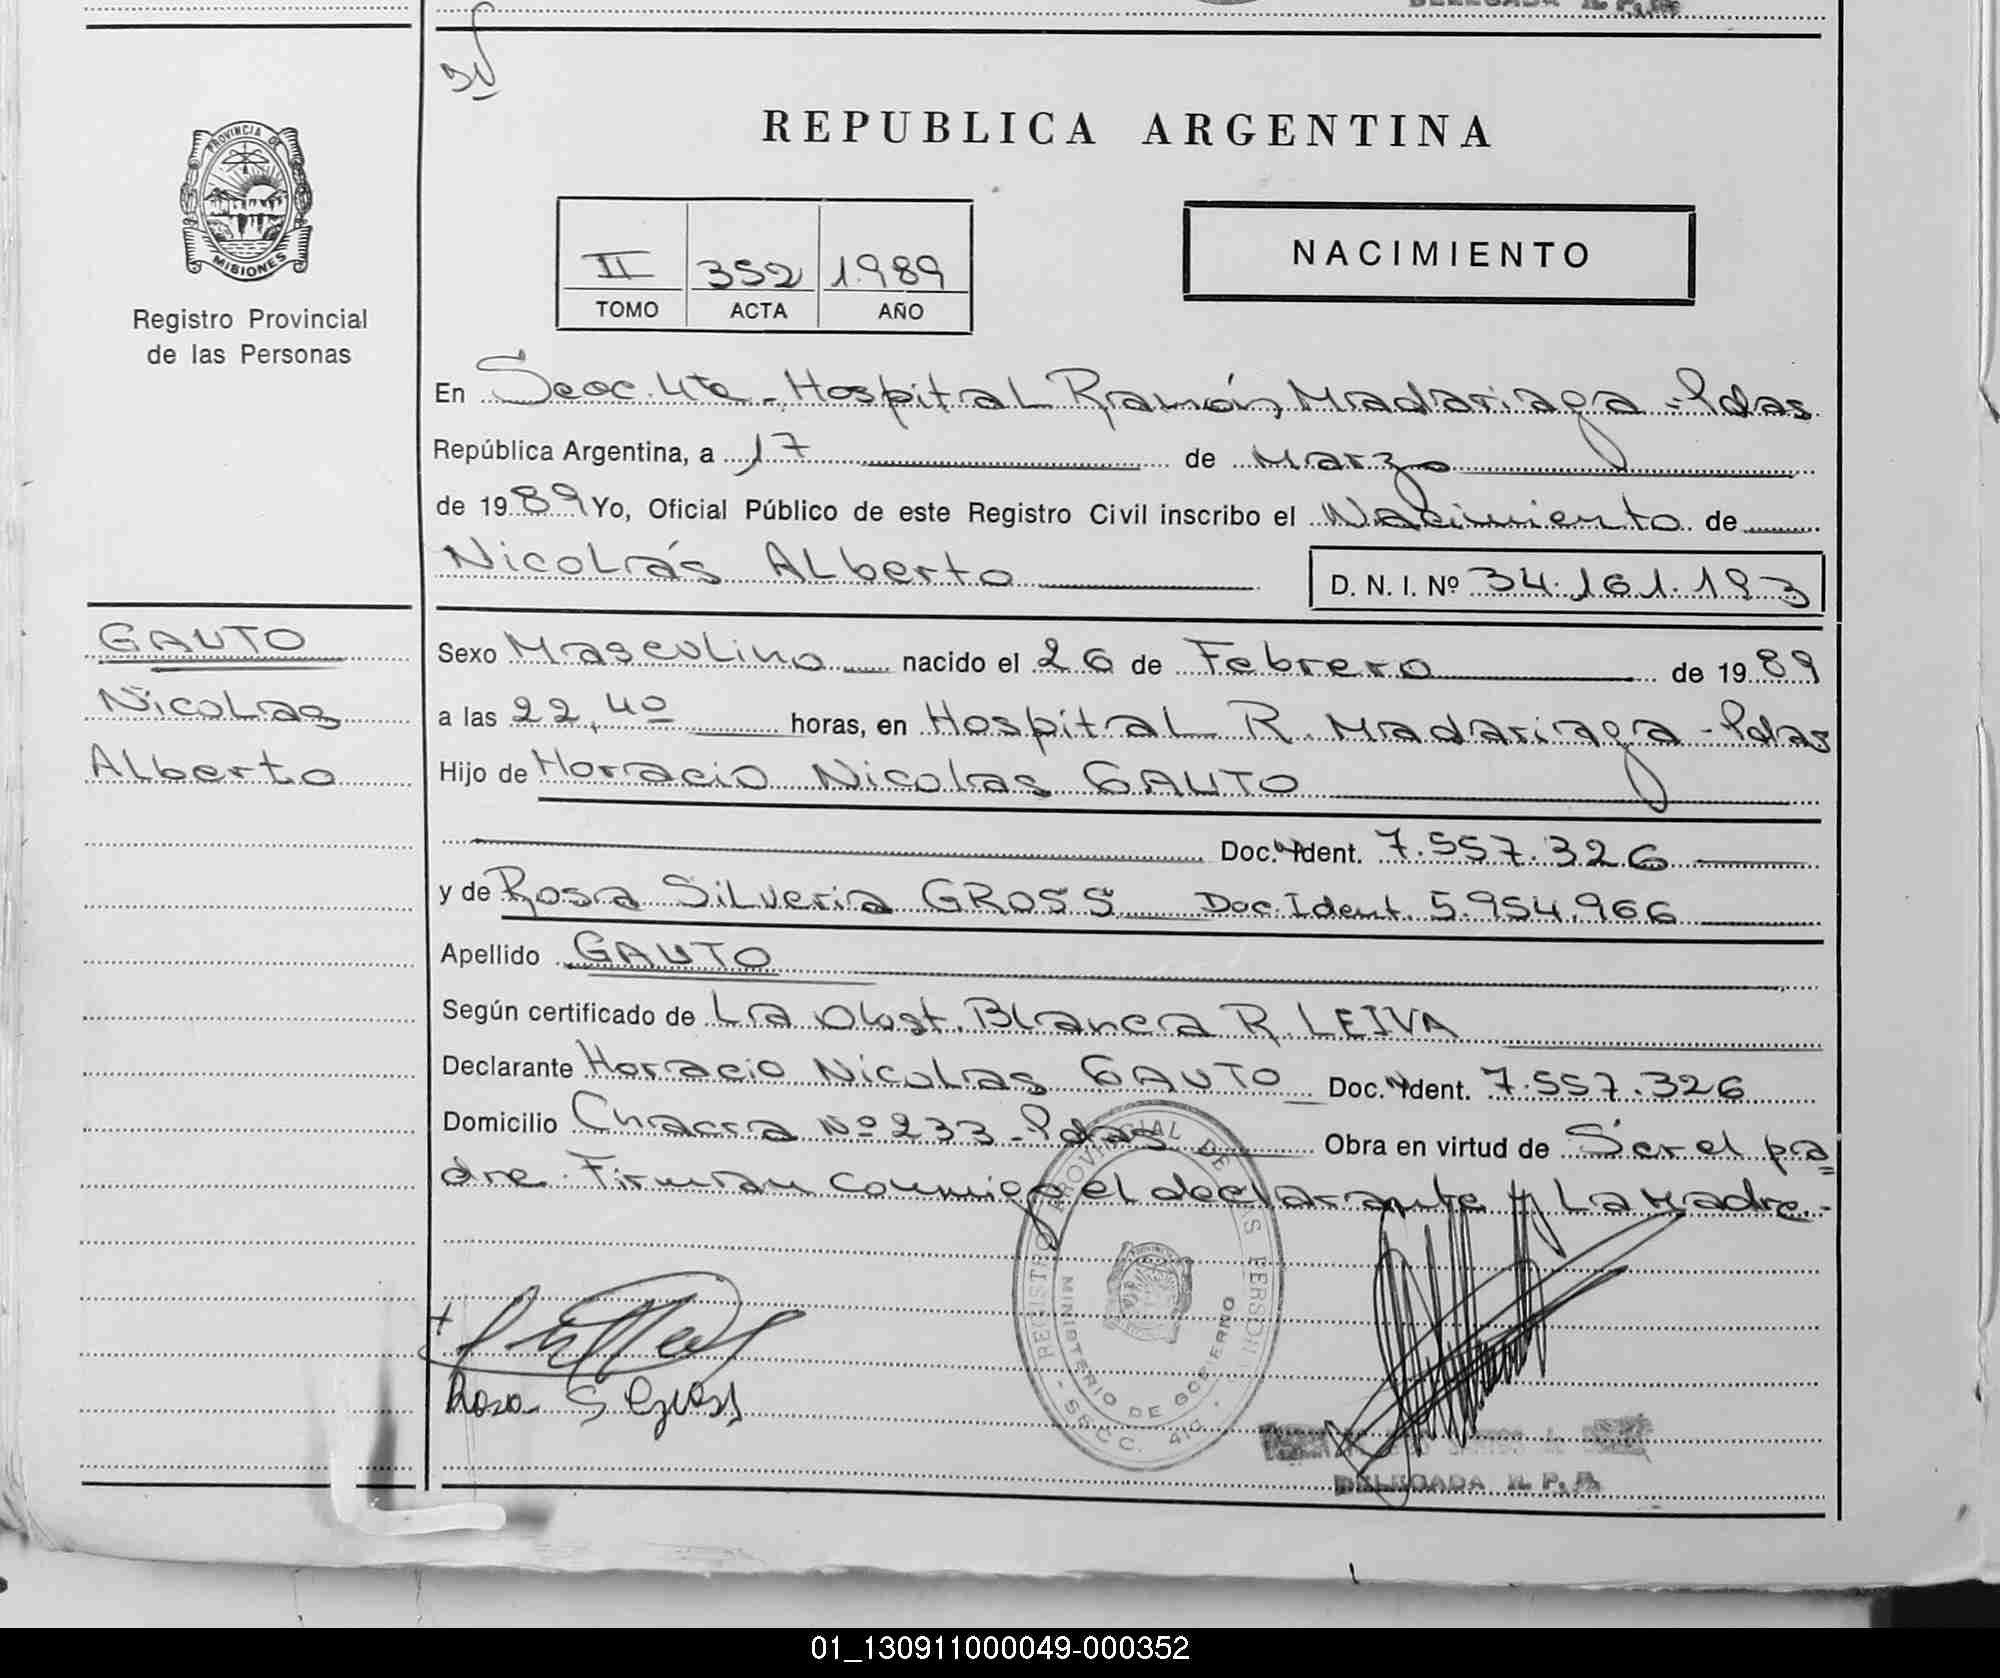 DELEGADA R. P. P.
REPUBLICA ARGENTINA
PROVINCIA DE
MISIONES
Registro Provincial
de las Personas
II 352 1989
TOMO ACTA AÑO
NACIMIENTO
En Secc. 4ta - Hospital Ramón Madariaga - Pdas
República Argentina, a 17 de Marzo
de 1989 Yo, Oficial Público de este Registro Civil inscribo el Nacimiento de
Nicolás Alberto D. N. I. Nº 34.161.193
GAUTO
Nicolas
Alberto
Sexo Masculino nacido el 26 de Febrero de 1989
a las 22,40 horas, en Hospital R. Madariaga - Pdas
Hijo de Horacio Nicolas GAUTO
Doc. Ident. 7.557.326
y de Rosa Silveria GROSS Doc. Ident. 5.954.966
Apellido GAUTO
Según certificado de La Obst. Blanca R. LEIVA
Declarante Horacio Nicolas GAUTO Doc. Ident. 7.557.326
Domicilio Chacra Nº 233 - Pdas Obra en virtud de Ser el pa=
dre. Firman conmigo el declarante y La Madre.-
REGISTRO PROVINCIAL DE LAS PERSONAS
MINISTERIO DE GOBIERNO
- SECC. 4ta. -
Rosa S Gross
DELEGADA R. P. P.
01_130911000049-000352